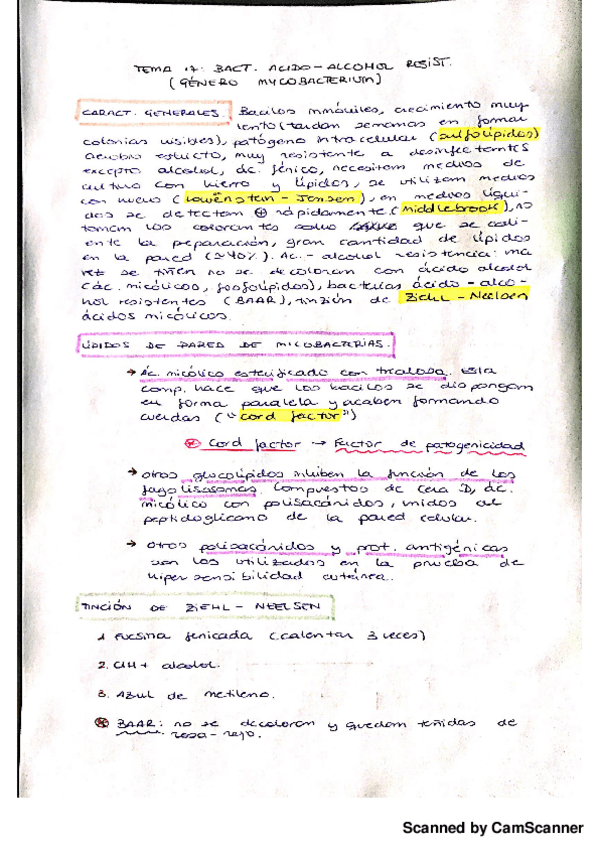 TEMA 17: BACT. ACIDO-ALCOHOL RESIST.
(GÉNERO MYCOBACTERIUM)
CARACT. GENERALES. Bacilos inmóviles, crecimiento muy
lento (tardan semanas en formar
colonias visibles), patógeno intracelular (sulfolípidos)
aerobio estricto, muy resistente a desinfectantes
excepto alcohol, ác. fénico, necesitan medios de
cultivo con hierro y lípidos, se utilizan medios
con huevo (Lowënstein - Jensen), en medios líqui-
dos se detectan ⊕ rápidamente (Middlebrook), no
toman los colorantes salvo que se cali-
ente la preparación, gran cantidad de lípidos
en la pared (≈40%). Ac.- alcohol resistencia: una
vez se tiñen no se decoloran con ácido alcohol
(ác. micólicos, fosfolípidos), bacterias ácido-alco-
hol resistentes (BAAR), tinzión de Ziehl - Neelsen
ácidos micólicos.
LÍPIDOS DE PARED DE MICOBACTERIAS.
→ Ac. micólico esterificado con trealosa. Esta
comp. hace que los bacilos se dispongan
en forma paralela y acaben formando
cuerdas ("cord factor")
⊛ Cord factor → Factor de patogenicidad
→ otros glucolípidos inhiben la función de los
fagolisosomas. Compuestos de cera D, ác.
micólico con polisacáridos, unidos al
peptidoglicano de la pared celular.
→ Otros polisacáridos y prot. antigénicas
son los utilizados en la prueba de
hipersensibilidad cutánea.
TINCIÓN DE ZIEHL - NEELSEN
1. Fucsina fenicada (calentar 3 veces)
2. ClH + alcohol.
3. Azul de metileno.
⊛ BAAR: no se decoloran y quedan teñidas de
rosa-rojo.
Scanned by CamScanner